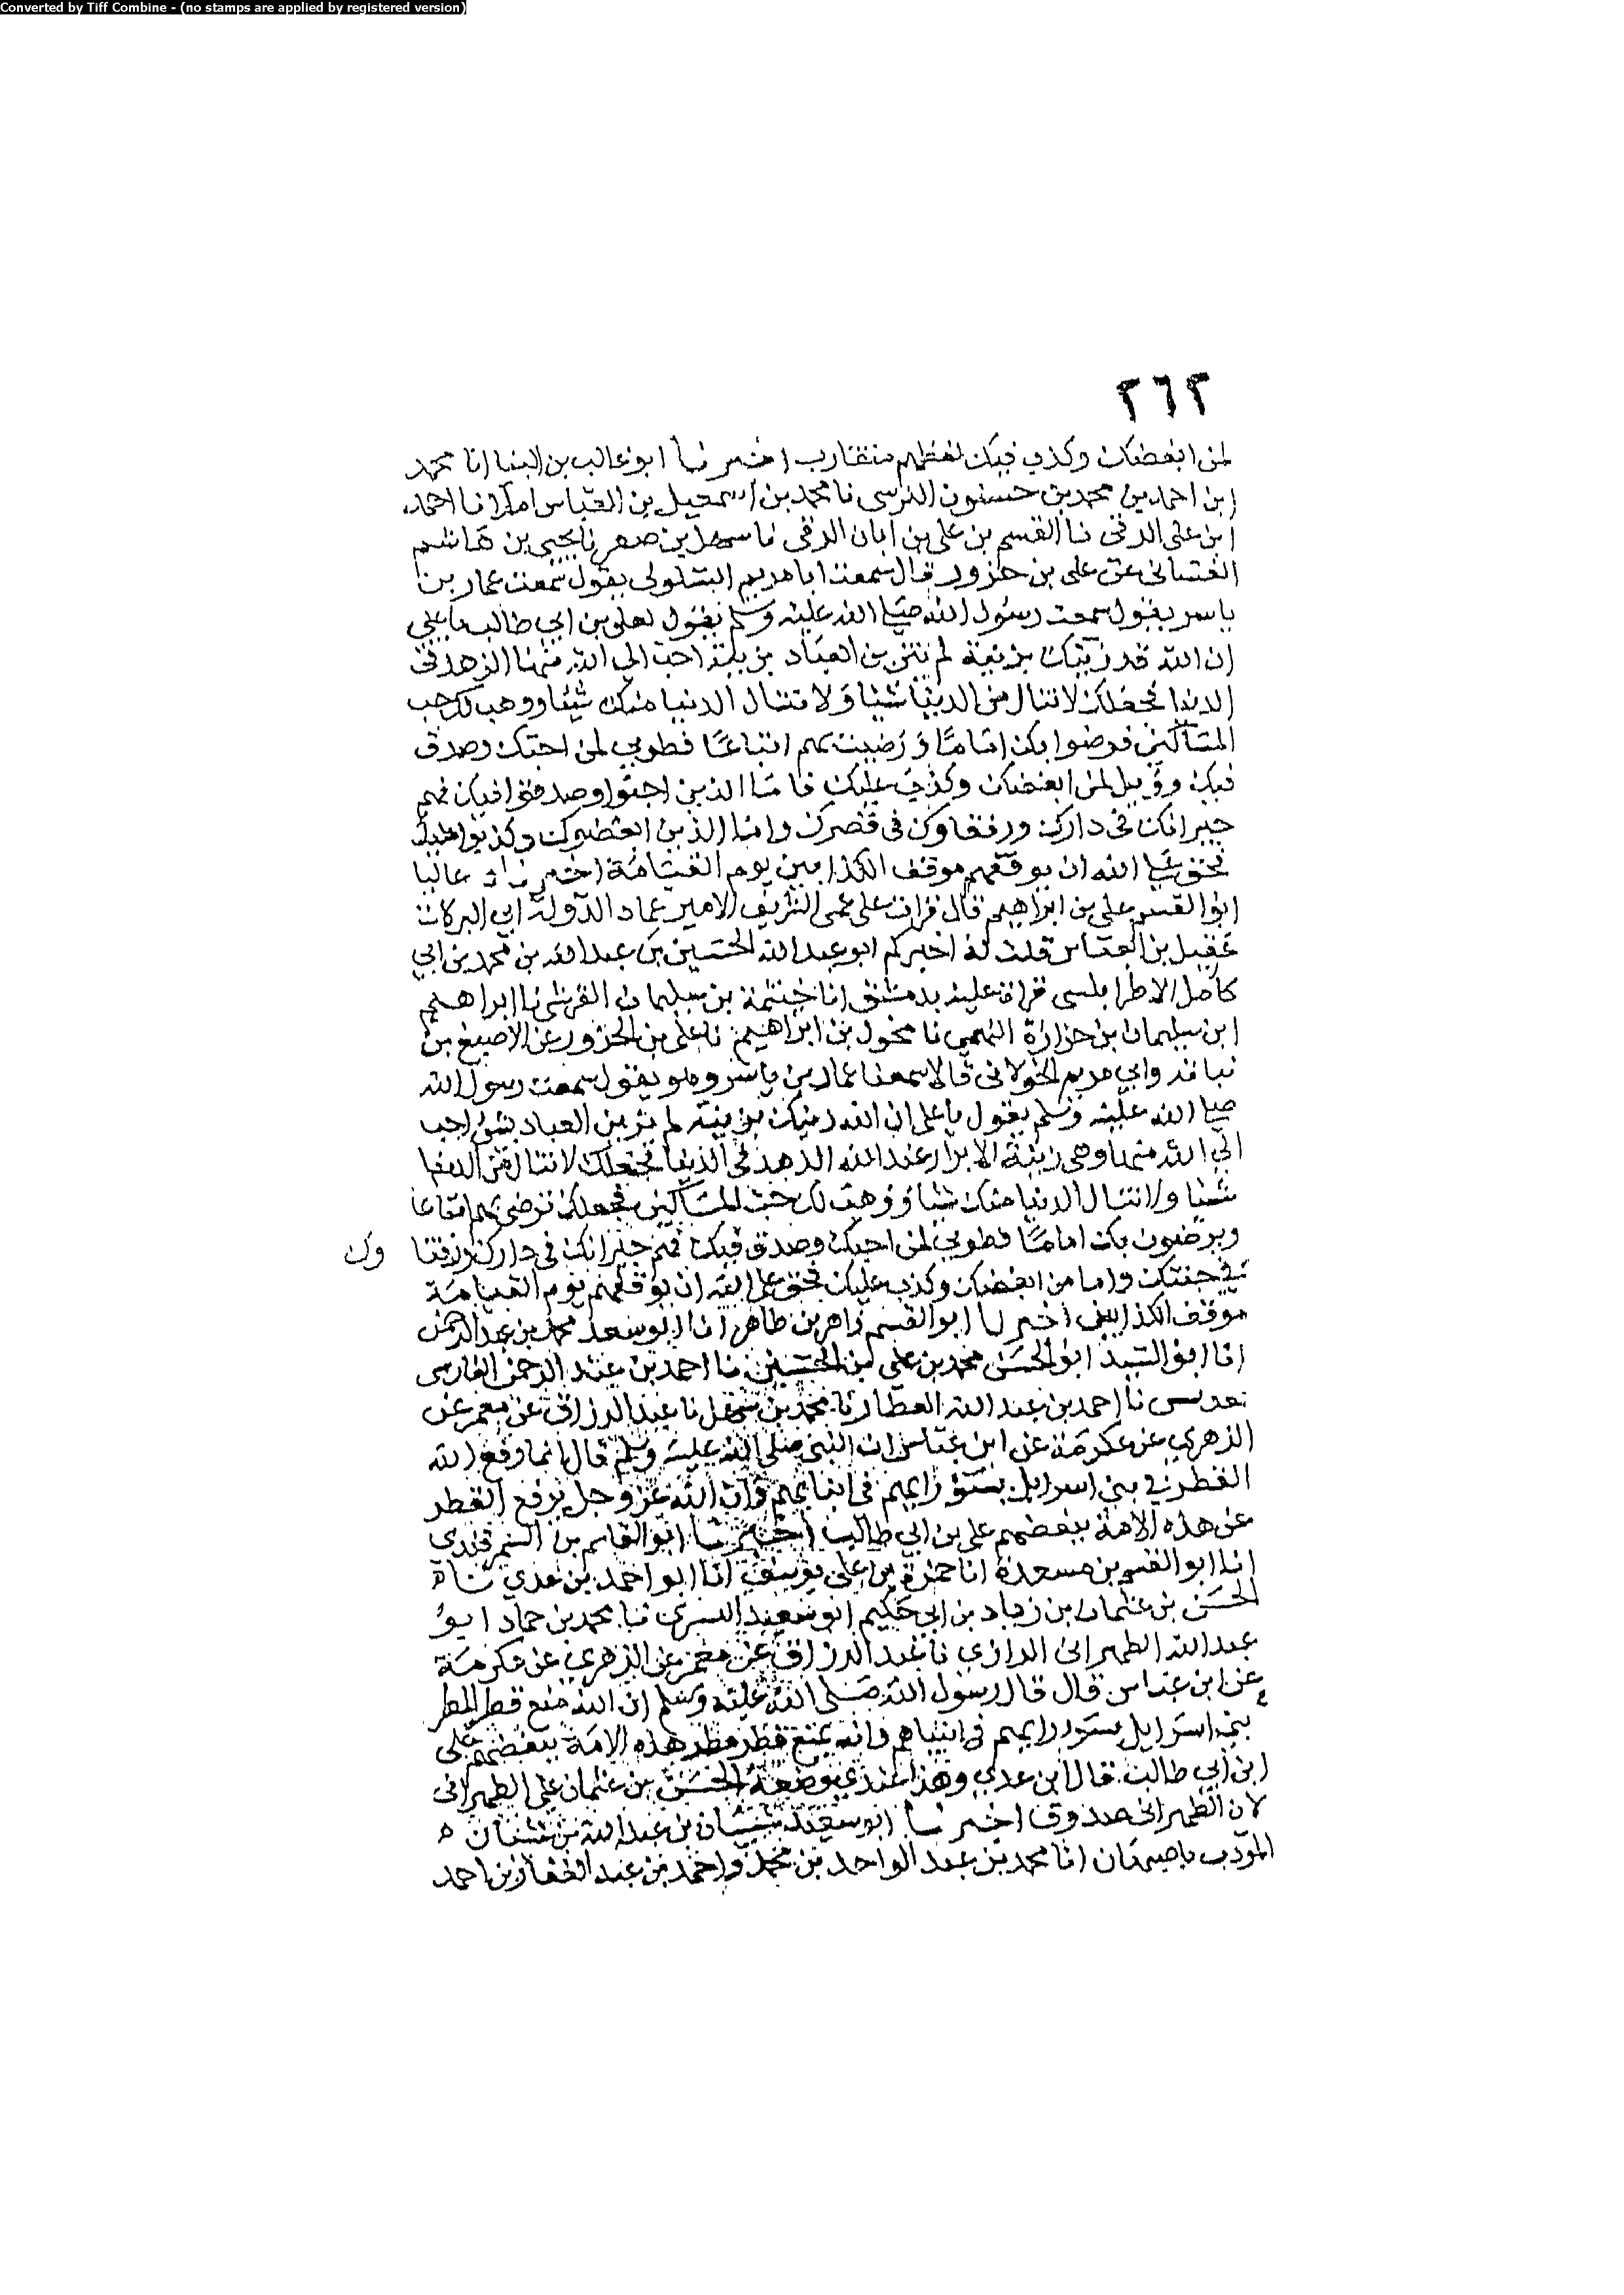 Converted by Tiff Combine - (no stamps are applied by registered version)
٢٦٢
لمن ابغضك وكذب فيك لفظهم متقارب اخبرنا ابو غالب بن البنا انا محمد
ابن احمد بن محمد بن حسنون النرسي نا محمد بن اسمعيل بن العباس املا نا احمد
ابن علي الرقي نا القسم بن علي بن ابان الرقي نا سهل بن صقر نا يحيى بن هاشم
الغساني عن علي بن حزور قال سمعت ابا مريم السلولي يقول سمعت عمار بن
ياسر يقول سمعت رسول الله صلى الله عليه وسلم يقول لعلي بن ابي طالب يا علي
ان الله قد زينك بزينة لم يتزين العباد بزينة احب الى الله منها الزهد في
الدنيا فجعلك لا تنال من الدنيا شيئا ولا تنال الدنيا منك شيئا ووهب لك حب
المساكين فرضوا بك اماما ورضيت بهم اتباعا فطوبى لمن احبك وصدق
فيك وويل لمن ابغضك وكذب عليك فاما الذين احبوك وصدقوا فيك فهم
جيرانك في دارك ورفقاوك في قصرك واما الذين ابغضوك وكذبوا عليك
فحق على الله ان يوقفهم موقف الكذابين يوم القيامة اخبرناه عاليا
ابو القسم علي بن ابراهيم قال قرات على عمي الشريف الامير عماد الدولة ابي البركات
عقيل بن العباس قلت له اخبركم ابو عبد الله الحسين بن عبد الله بن محمد بن ابي
كامل الاطرابلسي قراة عليه بدمشق انا خيثمة بن سليمان القرشي نا ابراهيم
ابن سليمان بن حزازة النهمي نا مخول بن ابراهيم نا علي بن الحزور عن الاصبغ بن
نباته وابي مريم الخولاني قالا سمعنا عمار بن ياسر وهو يقول سمعت رسول الله
صلى الله عليه وسلم يقول يا علي ان الله زينك بزينة لم تزين العباد بشئ احب
الى الله منها وهي زينة الابرار عند الله الزهد في الدنيا فجعلك لا تنال من الدنيا
شيئا ولا تنال الدنيا منك شيئا ووهب لك حب المساكين فجعلك ترضى بهم اتباعا
ويرضون بك اماما فطوبى لمن احبك وصدق فيك فهم جيرانك في دارك ورفقا وك
في جنتك واما من ابغضك وكذب عليك فحق على الله ان يوقفهم يوم القيامة
موقف الكذابين اخبرنا ابو القسم زاهر بن طاهر انا ابو سعد محمد بن عبد الرحمن
انا ابو السيد ابو الحسن محمد بن علي بن الحسين نا احمد بن عبد الرحمن الفارسي
نا احمد بن عبد الله العطار نا محمد بن نا عبد الرزاق عن معمر عن
الزهري عن عكرمة عن ابن عباس ان النبي صلى الله عليه وسلم قال انما رفع الله
القطر في بني اسرايل بسوء رايهم في انبيايهم وان الله عز وجل يرفع القطر
عن هذه الامة ببغضهم علي بن ابي طالب اخبرنا ابو القاسم بن السمرقندي
انا ابو القسم بن مسعدة انا حمزة بن علي يوسف انا ابو احمد بن عدي نا ه
الحسن بن عثمان بن زياد بن ابي حكيم ابو سعيد التستري نا محمد بن حماد ابو
عبد الله الطهراني الرازي نا عبد الرزاق عن معمر عن الزهري عن عكرمة
عن ابن عباس قال قال رسول الله صلى الله عليه وسلم ان الله منع قطر المطر
بني اسرايل بسوء رايهم في انبياهم وانه يمنع قطر مطر هذه الامة ببغضهم علي
ابن ابي طالب قال ابن عدي وهذا عندي وضعه الحسن بن عثمان على الطهراني
لان الطهراني صدوق اخبرنا ابو سعيد شيبان بن عبد الله بن شيبان ه
المودب باصبهان انا محمد بن عبد الواحد بن محمد واحمد بن عبد الغفار بن احمد